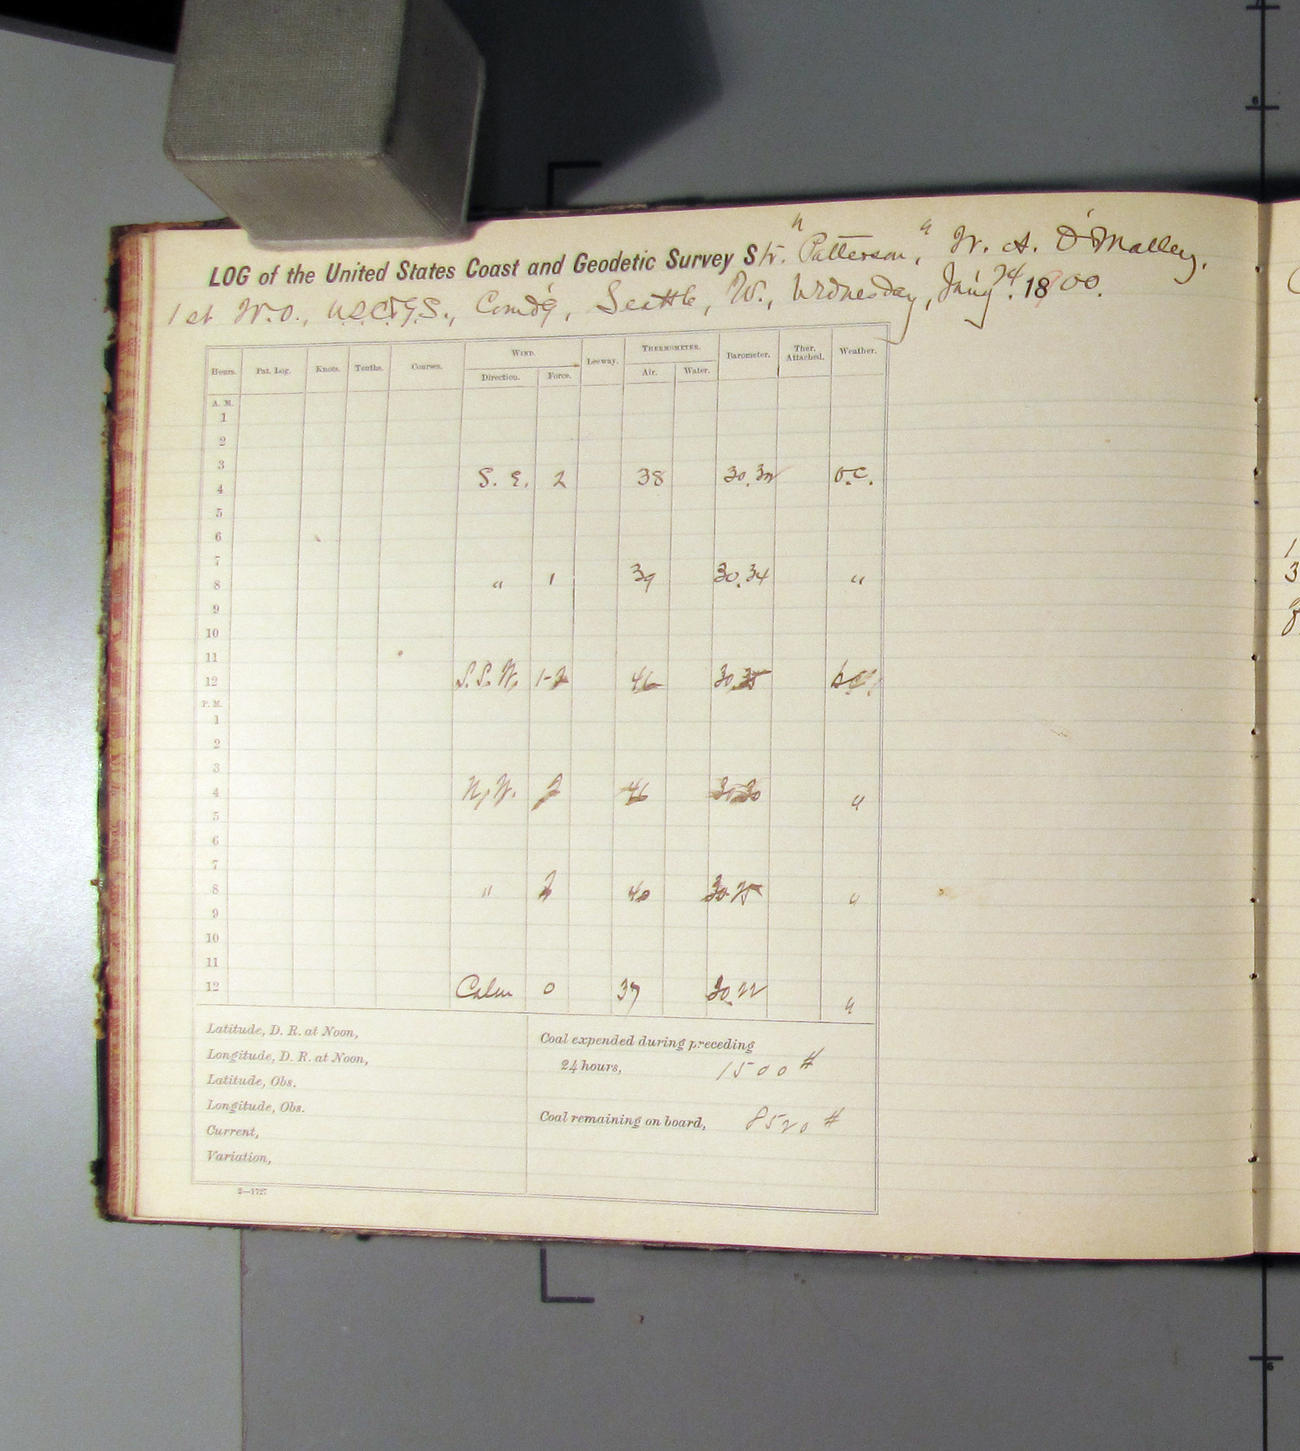 LOG of the United States Coast and Geodetic Survey Str. "Patterson," W. A. O'Malley,
1st W.O., U.S.C.&G.S., Comd'g, Seattle, W., Wednesday, 24. 1800.
Hours. Pat. Log. Knots. Tenths. Courses. WIND. Leeway. THERMOMETER. Barometer. Ther. Attached. Weather.
Direction. Force. Air. Water.
A. M.
1
2
3
S. E. 2 38 30.32 o.c.
4
5
6
7
8 " 1 39 30.34 "
9
10
11
12 S.S.W. 1-2 46 30.35 b.c.
P. M.
1
2
3
4 N.W. 2 46 30.30 "
5
6
7
8 " 2 40 30.25 "
9
10
11
12 Calm 0 37 30.22 "
Latitude, D. R. at Noon,
Longitude, D. R. at Noon,
Latitude, Obs.
Longitude, Obs.
Current,
Variation,
Coal expended during preceding
24 hours, 1500 #
Coal remaining on board, 8520 #
2—1727
1
3
6
6